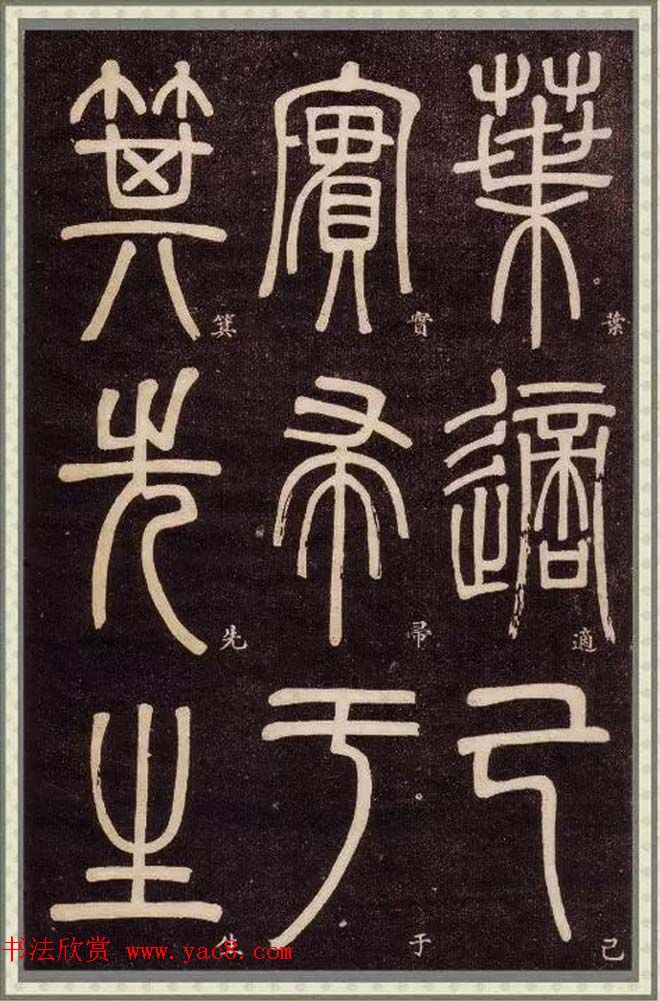 葉適己
葉適己
實帚于
實帚于
箕先生
箕先生
书法欣赏 www.yac8.com